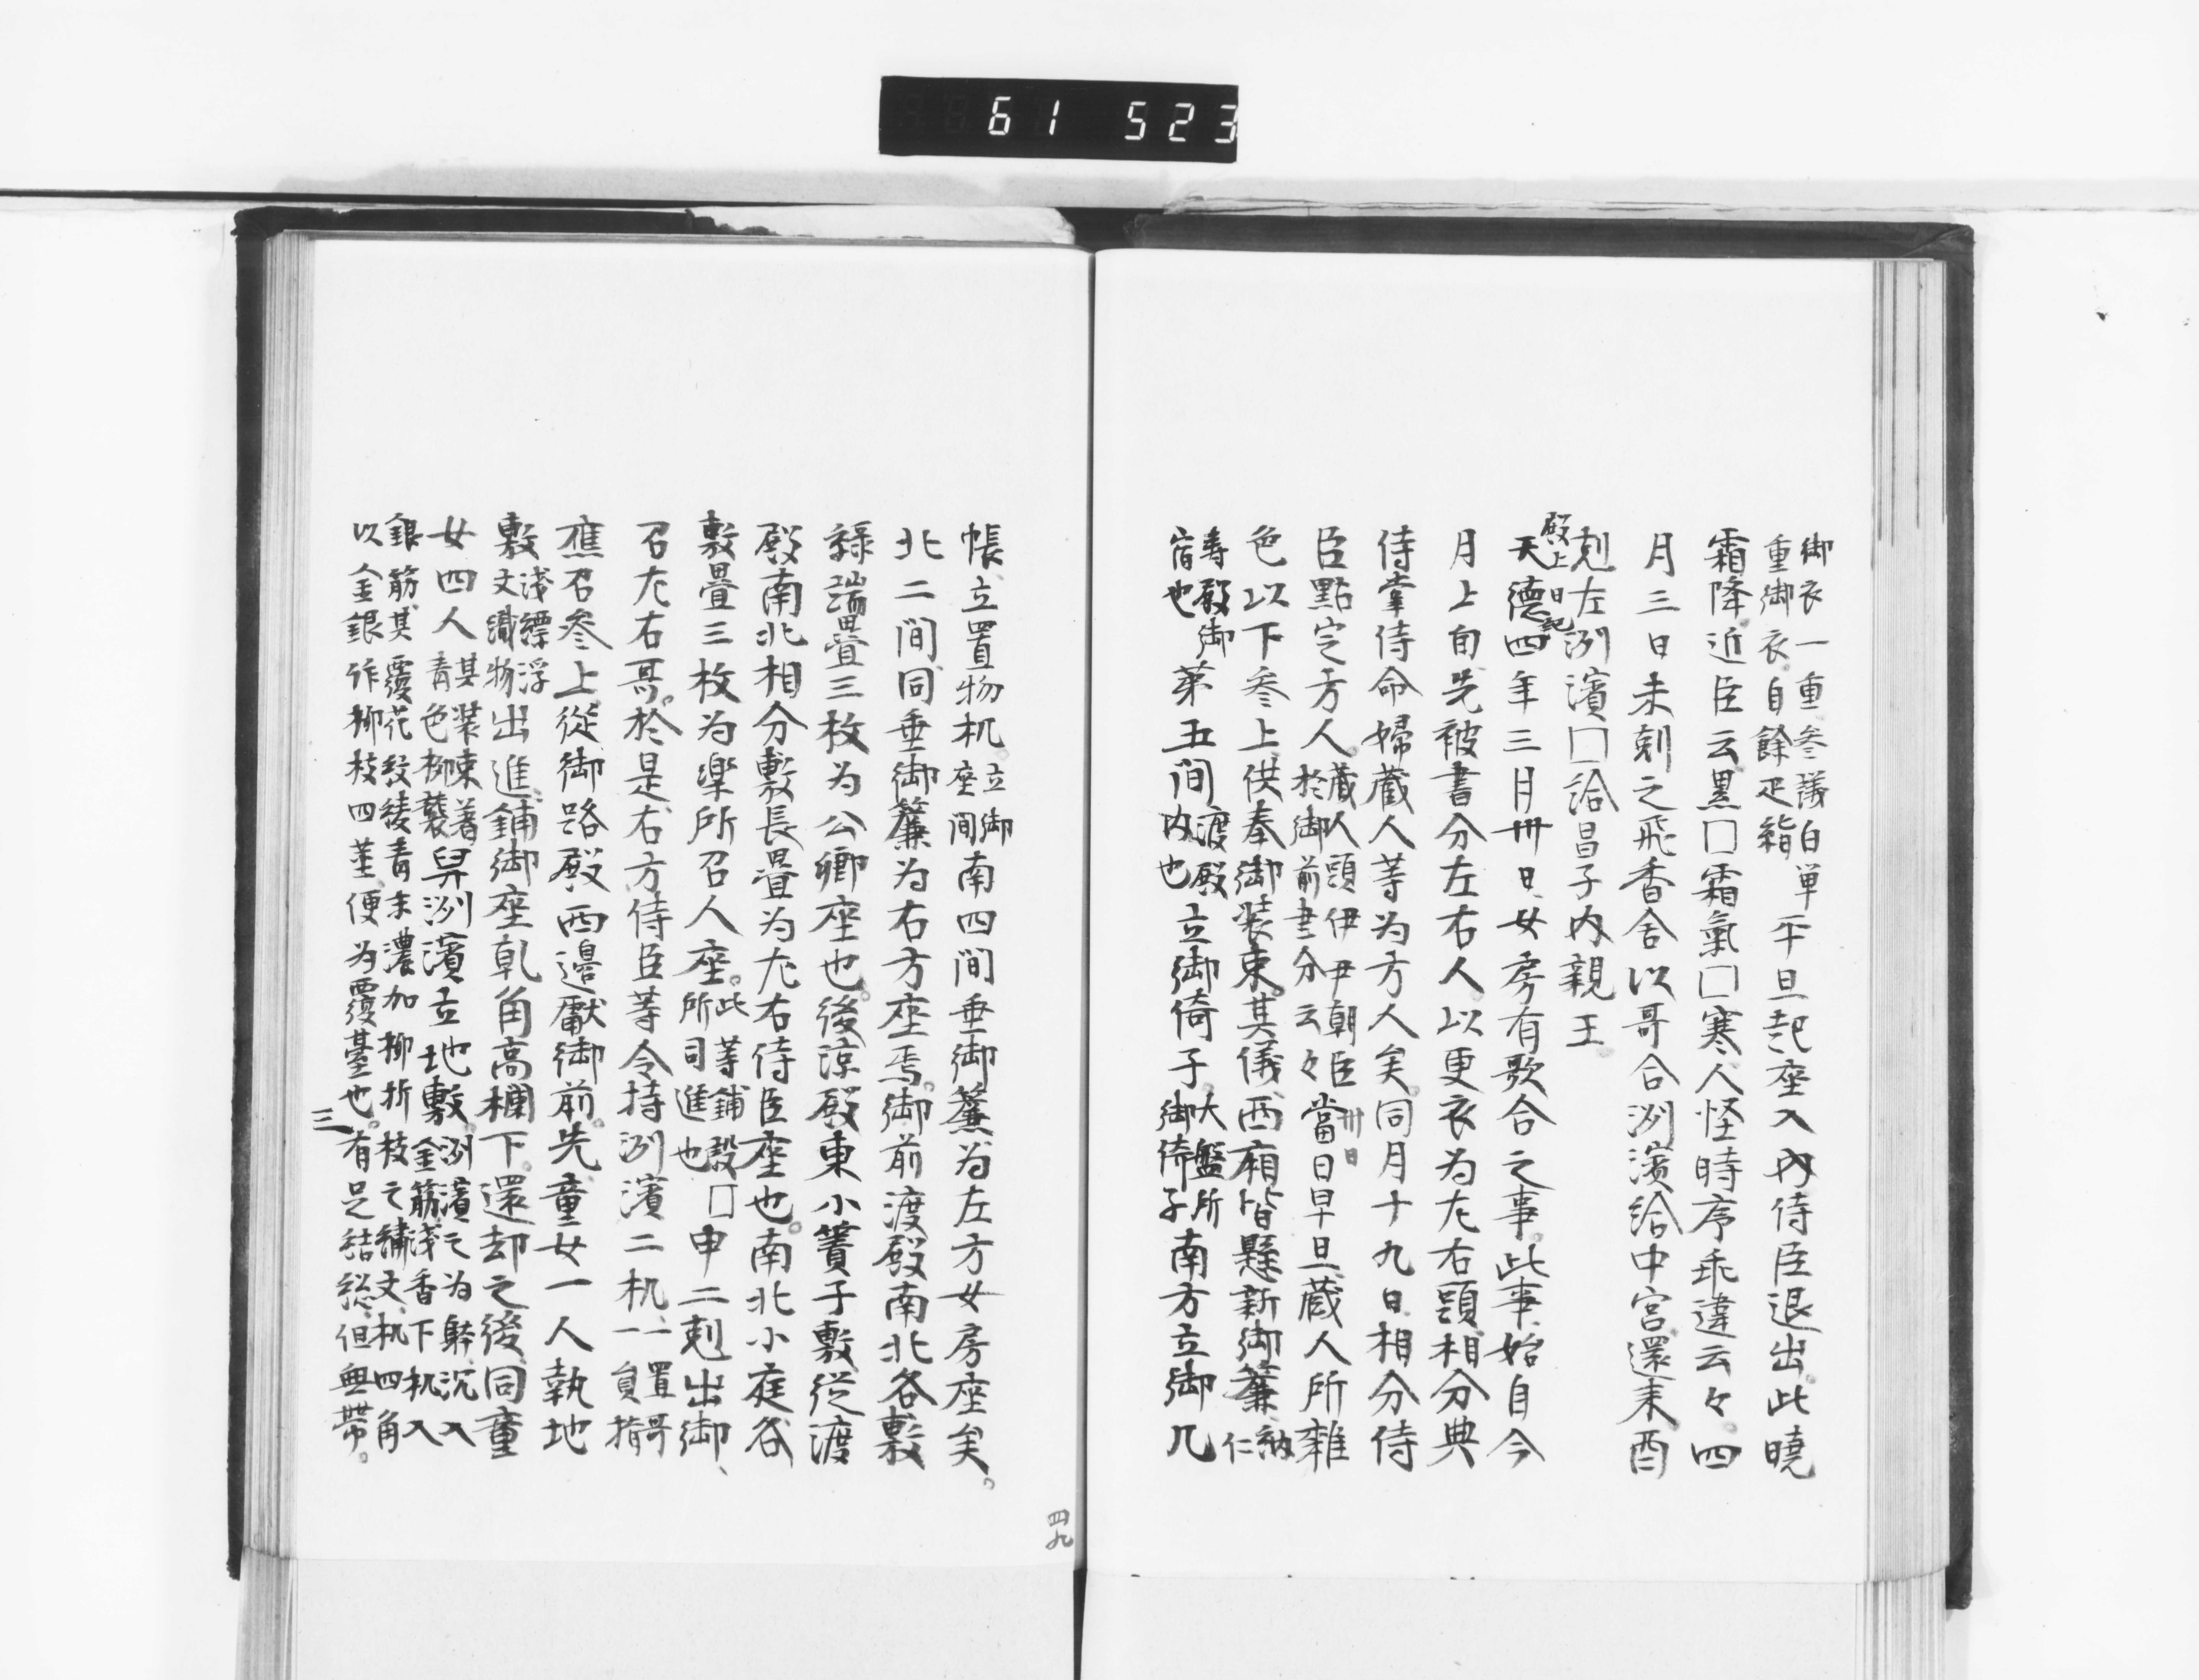 61 523
御衣一重参議白単
重御衣自餘疋絹
平旦起座入内侍臣退出此暁
霜降近臣云黒□霜氣□寒人怪時序乖違云々四
月三日未剋之飛香舎以哥合洲濱給中宮還来酉
剋左洲濱□給昌子内親王
殿上日記
天徳四年三月卅日女房有歌合之事此事始自今
月上旬先被書分左右人以更衣為左右頭相分典
侍掌侍命婦蔵人等為方人矣同月十九日相分侍
臣點定方人
蔵人頭伊尹朝臣
於御前書分云々
卅日
當日早旦蔵人所雑
色以下参上供奉御装束其儀西廂皆懸新御簾
納仁
壽殿御
宿也
第五間
渡殿
内也
立御倚子
大盤所
御倚子
南方立御几
帳立置物机
立御
座間
南四間垂御簾為左方女房座矣。
北二間同垂御簾為右方座焉御前渡殿南北各敷
緑端畳三枚為公卿座也後涼殿東小簀子敷従渡
殿南北相分敷長畳為左右侍臣座也南北小庭各
敷畳三枚為楽所召人座
此等鋪設
所司進也
□申二剋出御、
召左右哥於是右方侍臣等令持洲濱二机
一置哥
一員指
應召参上従御路殿西邉獻御前先童女一人執地
敷
浅縹浮
文織物
出進鋪御座乾角高欄下還却之後同童
女四人
其装束著
青色柳襲
舁洲濱立地敷
洲濱之為躰沉入
金筋浅香下机入
銀筋其覆花紋綾青末濃加柳折枝之繍文机四角
以金銀作柳枝四茎便為覆臺也有足結総但無帯。
三
四九